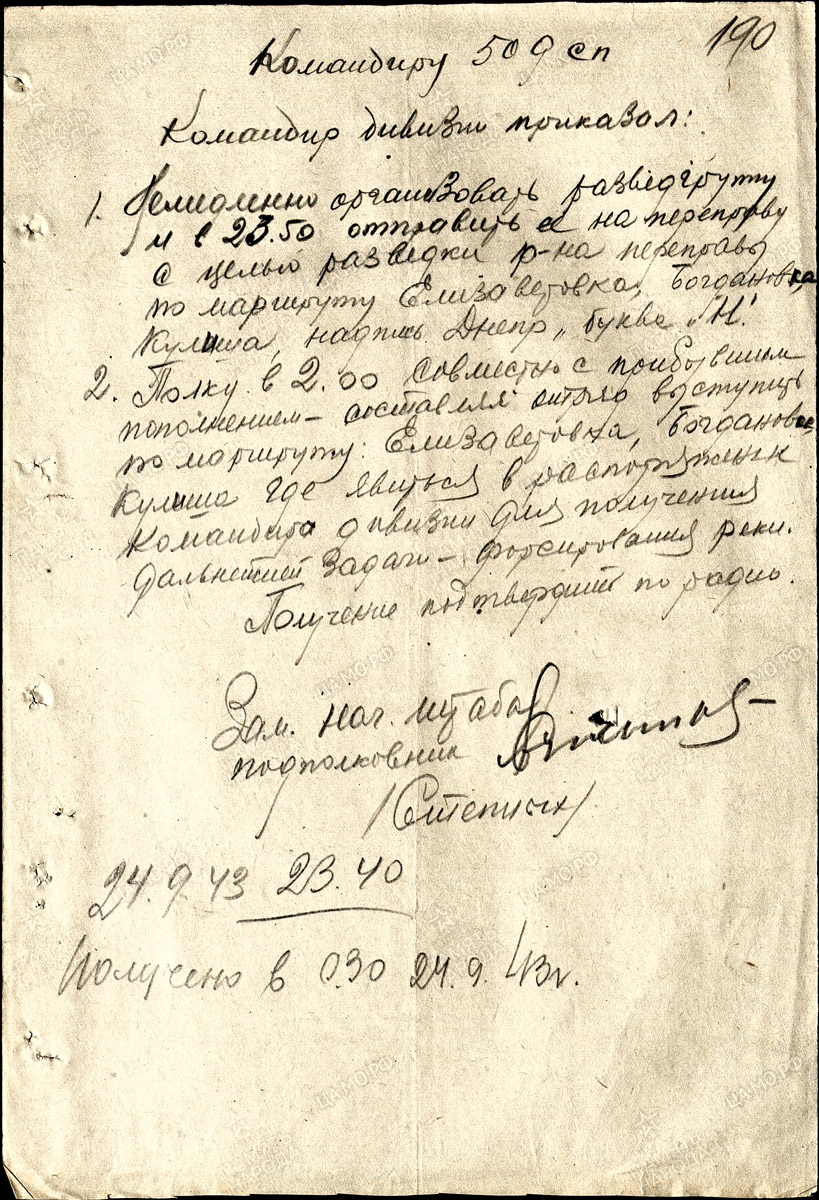 190
Командиру 509 сп
Командир дивизии приказал:
1. Немедленно организовать разведгруппу
и в 23.50 отправить ее на переправу
с целью разведки р-на переправы
по маршруту Елизаветовка, Богдановка,
Кулиша, надпись Днепр, буква "Н".
2. Полку в 2.00 совместно с прибывшим
пополнением – выступить
по маршруту: Елизаветовка, Богдановка,
Кулиша где явиться в распоряжение
Командира дивизии для получения
дальнейшей задачи – форсирования реки.
Получение подтвердите по радио.
Зам. нач. штаба
подполковник
/Степных/
24.9.43 23.40
Получено в 0.30 24.9.43г.